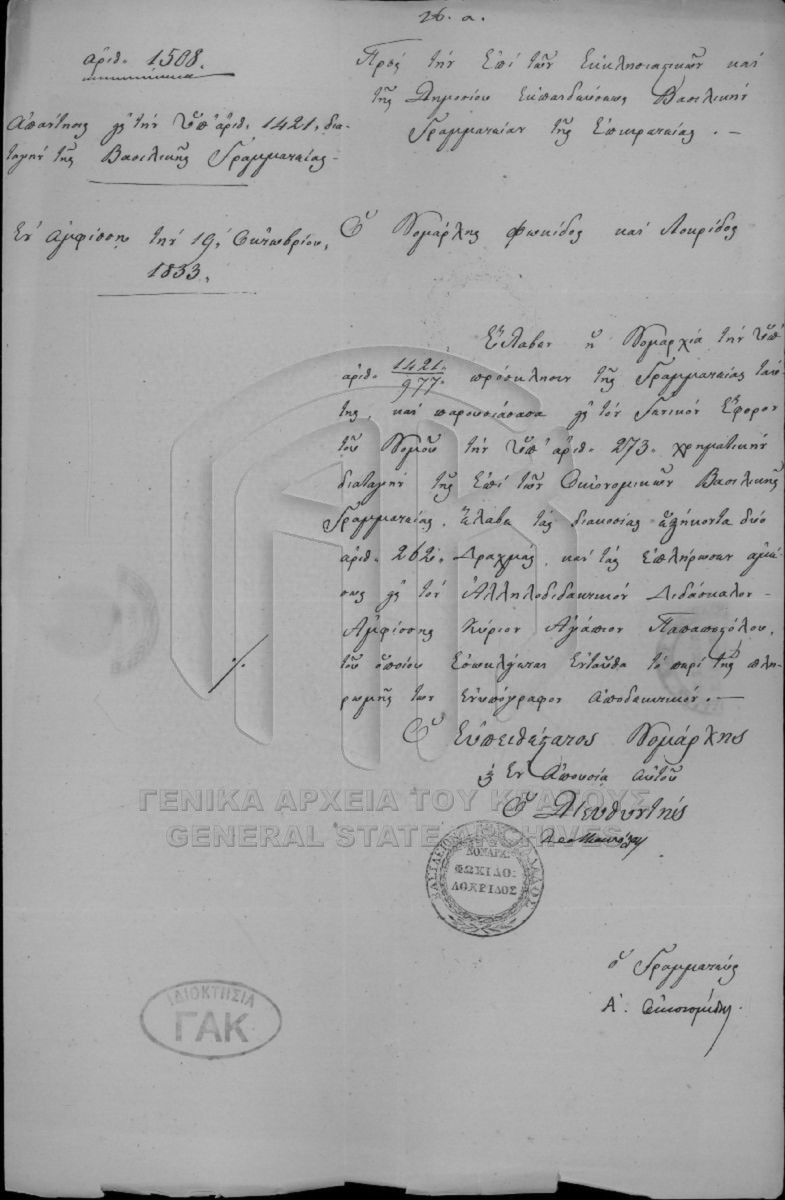 26. α.
ἀριθ. 1508.
Ἀπάντησις εἰς τὴν ὑπ' ἀριθ. 1421. δια-
ταγὴν τῆς Βασιλικῆς Γραμματείας.
Ἐν Ἀμφίσσῃ τὴν 19, Ὀκτωβρίου,
1833.
Πρὸς τὴν ἐπὶ τῶν Ἐκκλησιαστικῶν καὶ
τῆς Δημοσίου Ἐκπαιδεύσεως Βασιλικὴν
Γραμματείαν τῆς Ἐπικρατείας. —
Ὁ Νομάρχης Φωκίδος καὶ Λοκρίδος
Ἔλαβεν ἡ Νομαρχία τὴν ὑπ'
ἀριθ. 1421/977. πρόσκλησιν τῆς Γραμματείας ταύ-
της, καὶ παρουσιάσασα εἰς τὸν Γενικὸν Ἔφορον
τοῦ Νομοῦ τὴν ὑπ' ἀριθ. 273. χρηματικὴν
διαταγὴν τῆς ἐπὶ τῶν Οἰκονομικῶν Βασιλικῆς
Γραμματείας, ἔλαβε τὰς διακοσίας ἑξήκοντα δύο
ἀριθ. 262. Δραχμάς, καὶ τὰς ἐπλήρωσεν ἀμέ-
σως εἰς τὸν Ἀλληλοδιδακτικὸν Διδάσκαλον
Ἀμφίσσης Κύριον Ἀγάπιον
τοῦ ὁποίου ἐσωκλείεται ἐνταῦθα τὸ περὶ τῆς πλη-
ρωμῆς των ἐνυπόγραφον ἀποδεικτικόν. —
Ὁ Εὐπειθέστατος Νομάρχης
ἐν ἀπουσίᾳ αὐτοῦ
Ὁ Διευθυντής
ΒΑΣΙΛΕΙΟΝ ΤΗΣ ΕΛΛΑΔΟΣ
ΝΟΜΑΡΧ:
ΦΩΚΙΔΟ:
ΛΟΚΡΙΔΟΣ
ὁ Γραμματεὺς
Α. Οἰκονομίδης
ΓΕΝΙΚΑ ΑΡΧΕΙΑ ΤΟΥ ΚΡΑΤΟΥΣ
GENERAL STATE ARCHIVES
ΙΔΙΟΚΤΗΣΙΑ
ΓΑΚ